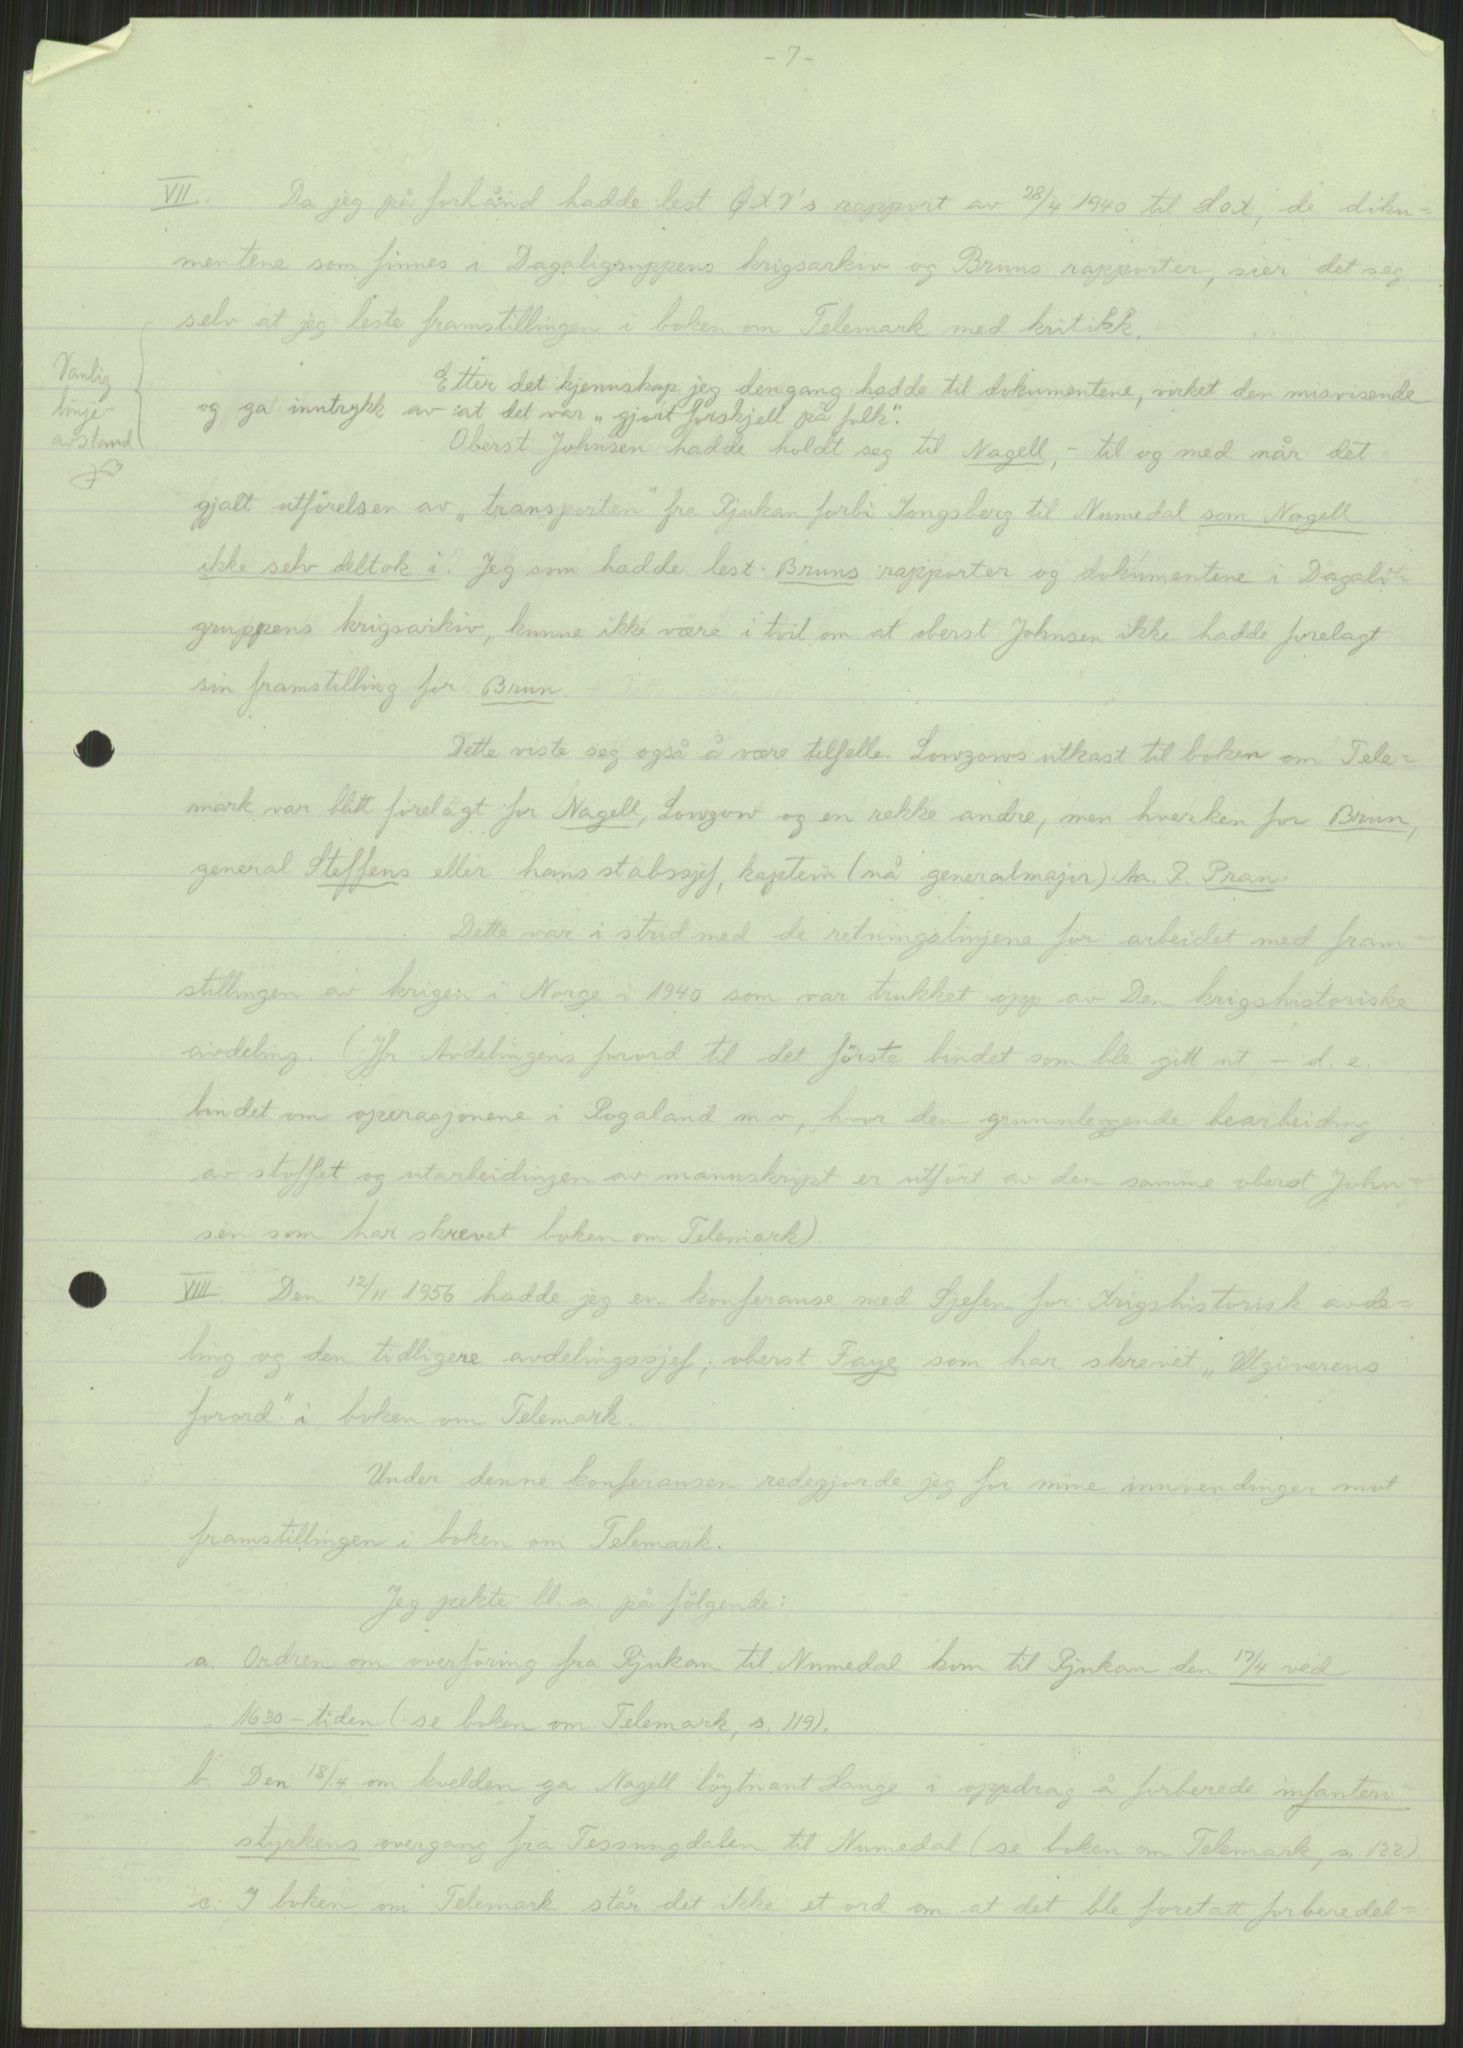 - 7 -
VII. Da jeg på forhånd hadde lest rapport av 28/4 1940 til de doku-
mentene som finnes i Dagaligruppens krigsarkiv og Bruns rapporter, sier det seg
selv at jeg leste framstillingen i boken om Telemark med kritikk.
Vanlig
linje-
avstand
Etter det kjennskap jeg dengang hadde til dokumentene, virket den misvisende
og ga inntrykk av at det var „gjort forskjell på folk".
Oberst Johnsen hadde holdt seg til Nagell, - til og med når det
gjalt utförelsen av „transporten" fra Rjukan forbi Kongsberg til Numedal som Nagell
ikke selv deltok i. Jeg som hadde lest Bruns rapporter og dokumentene i Dagali-
gruppens krigsarkiv, kunne ikke være i tvil om at oberst Johnsen ikke hadde forelagt
sin framstilling for Brun.
Dette viste seg også å være tilfelle. Lowzows utkast til boken om Tele-
mark var blitt forelagt for Nagell, Lowzow og en rekke andre, men hverken for Brun,
general Steffens eller hans stabssjef, kaptein (nå generalmajor) Aa. P. Pran.
Dette var i strid med de retningslinjene for arbeidet med fram-
stillingen av krigen i Norge i 1940 som var trukket opp av Den krigshistoriske
avdeling. (Jfr Avdelingens forord til det förste bindet som ble gitt ut, - d. e.
bindet om operasjonene i Rogaland m v, hvor den grunnleggende bearbeiding
av stoffet og utarbeidingen av mannskript er utfört av den samme oberst John-
sen som har skrevet boken om Telemark)
VIII. Den 12/11 1956 hadde jeg en konferanse med Sjefen for Krigshistorisk avde-
ling og den tidligere avdelingssjef, oberst Faye som har skrevet „Utgiverens
forord" i boken om Telemark.
Under denne konferansen redegjorde jeg for mine innvendinger mot
framstillingen i boken om Telemark.
Jeg pekte bl. a. på fölgende:
a. Ordren om overföring fra Rjukan til Numedal kom til Rjukan den 17/4 ved
1630-tiden (se boken om Telemark, s. 119).
b. Den 18/4 om kvelden ga Nagell löytnant Lange i oppdrag å forberede infanteri-
styrkens overgang fra Tessungdalen til Numedal (se boken om Telemark, s. 122)
c. I boken om Telemark står det ikke et ord om at det ble foretatt forberedel-